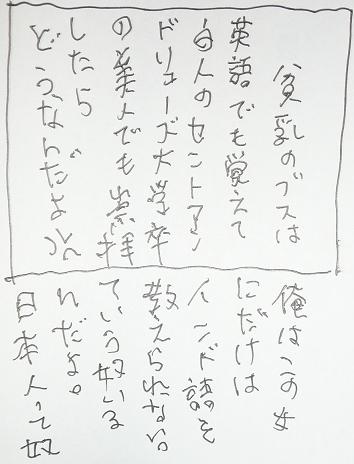 貧乳のブスは
英語でも覚えて
白人のセントアン
ドリューズ大学卒
の美人でも崇拝
したら
どうなんだよ
俺はこの女
にだけは
インド語を
教えられない。
ていう奴いる
んだよ。
日本人って奴